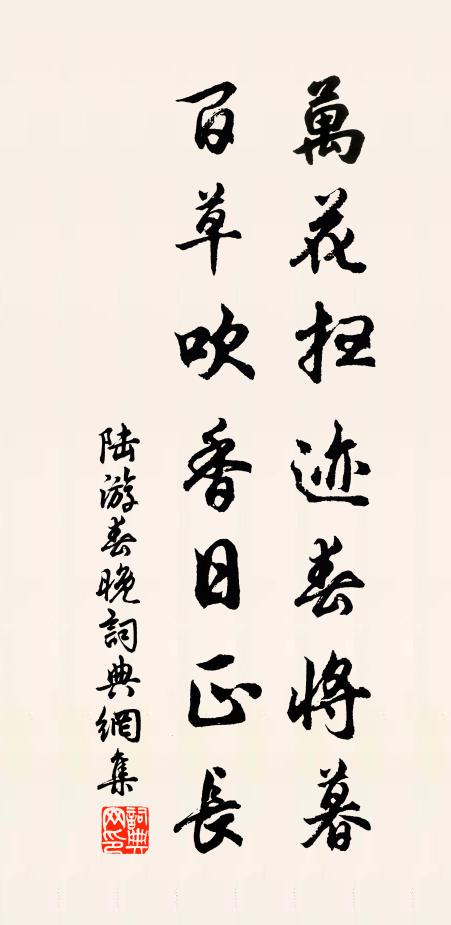 萬花扫迹春將暮
百草吹香日正長
陆游春晚詞典網集
詞典网印